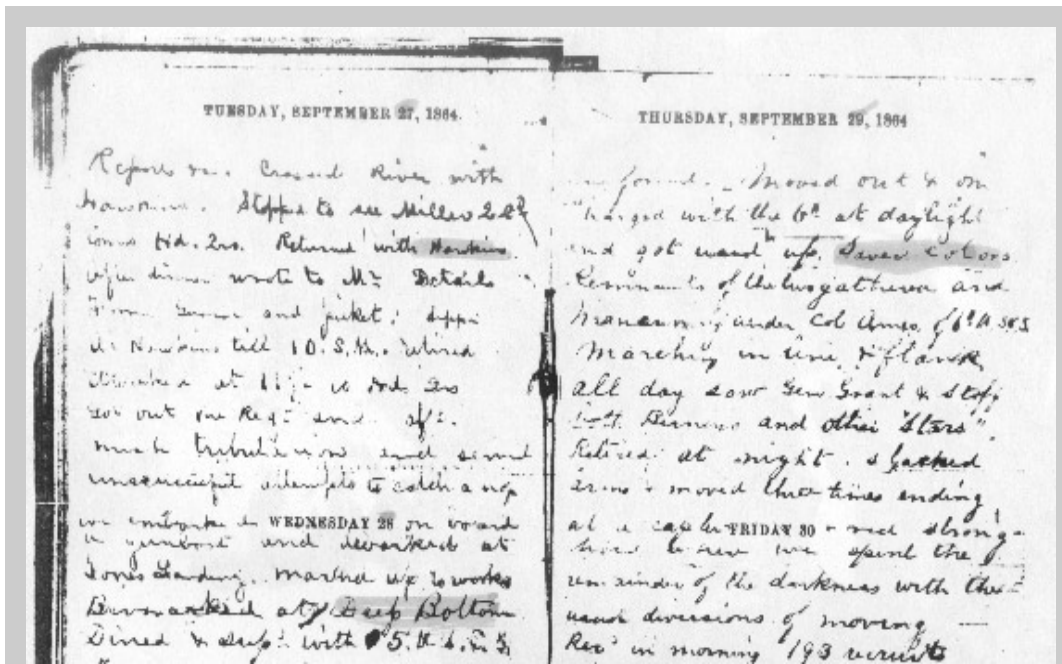 TUESDAY, SEPTEMBER 27, 1864.
Crossed River with
Hawkins. Stopped to see Miller 22d
Hd. Qrs. Returned with Hawkins
after dinner wrote to Mr Details
and picket.
Hawkins till 10 retired
at
Got out one Regt and
much tribulation and several
unsuccessful attempts to catch a nap
we embarked WEDNESDAY 28 on board
a gunboat and debarked at
Jones Landing. Marched up to works
Bivouacked at Deep Bottom
Dined & with 5th
THURSDAY, SEPTEMBER 29, 1864
Moved out & on
charged with the 6th at daylight
and got used up. Saved Colors
Remnants of the two gathered and
Maneuvering under Col Ames of 6th
Marching in line & flank
all day saw Gen Grant & Staff
Birney and other "Stars".
Retired at night. stacked
arms & moved three times ending
at a FRIDAY 30 strong-
we spent the
remainder of the darkness with the
usual diversions of moving
Recd in morning 193 recruits